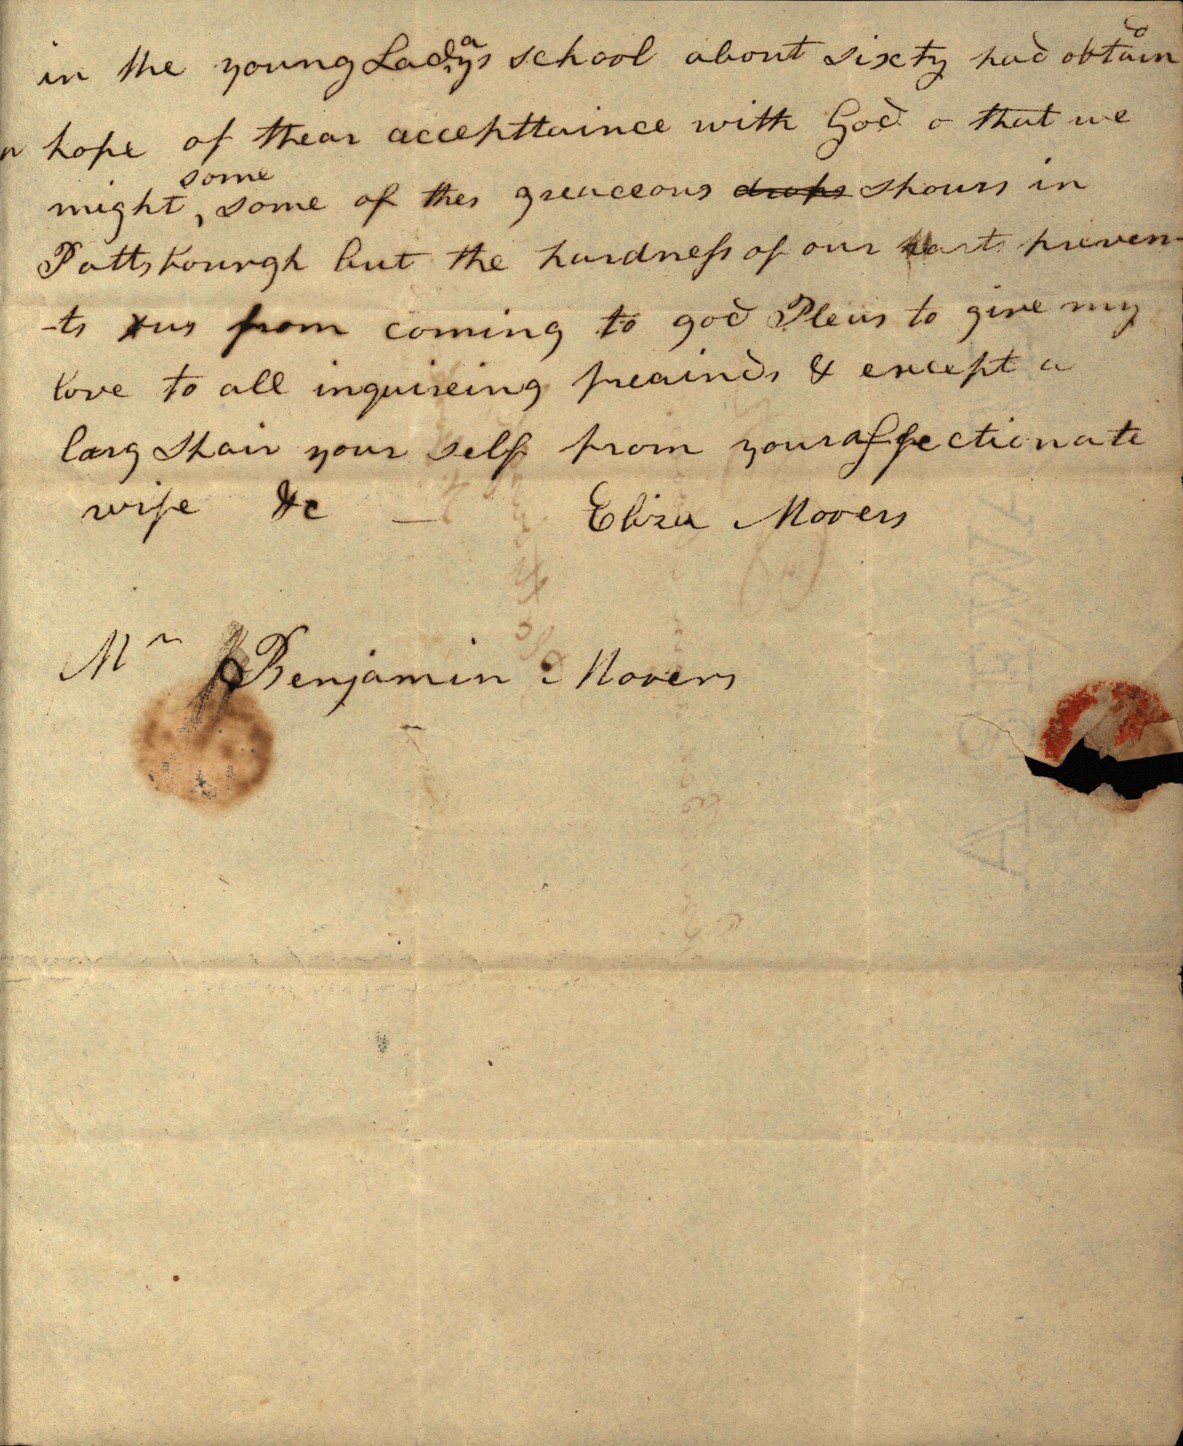 in the young Ladays school about sixty had obtaind
hope of thear accepttaince with God o that we
might, some some of thes greaceous drops shours in
Pattsbourgh but the hardness of our harts preven-
-ts us from coming to god Pleas to give my
love to all inquireing freainds & except a
larg Shair your self from your affectionate
wife &c — Eliza Mooers
Mr Benjamin Mooers